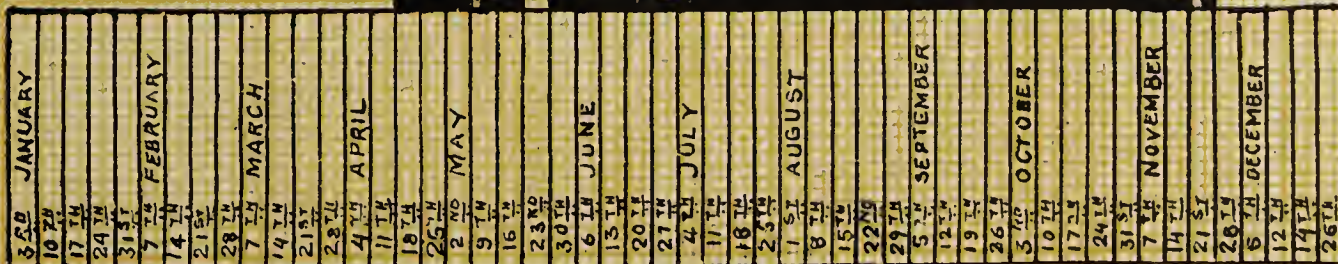 3RD JANUARY
10TH
17TH
24TH
31ST
7TH FEBRUARY
14TH
21ST
28TH
7TH MARCH
14TH
21ST
28TH
4TH APRIL
11TH
18TH
25TH
2ND MAY
9TH
16TH
23RD
30TH
6TH JUNE
13TH
20TH
27TH
4TH JULY
11TH
18TH
25TH
1ST AUGUST
8TH
15TH
22ND
29TH
5TH SEPTEMBER
12TH
19TH
26TH
3RD OCTOBER
10TH
17TH
24TH
31ST
7TH NOVEMBER
14TH
21ST
28TH
5TH DECEMBER
12TH
19TH
26TH